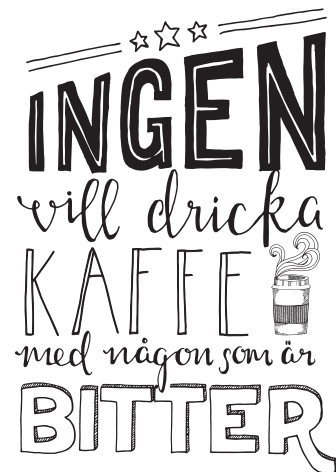 INGEN
vill dricka
KAFFE
med någon som är
BITTER